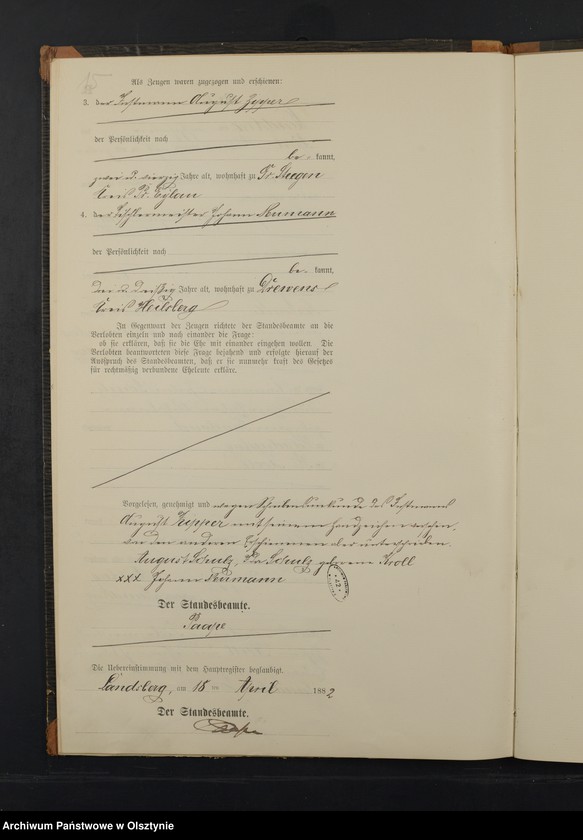 15
Als Zeugen waren zugezogen und erschienen:
3. der Instmann August
der Persönlichkeit nach
be- kannt,
zwei u. vierzig Jahre alt, wohnhaft zu Pr. Stegen
Kreis Pr. Eylau
4. der Tischlermeister Johann Neumann
der Persönlichkeit nach
be- kannt,
drei u. dreißig Jahre alt, wohnhaft zu Drewens
Kreis Heilsberg
In Gegenwart der Zeugen richtete der Standesbeamte an die
Verlobten einzeln und nach einander die Frage:
ob sie erklären, daß sie die Ehe mit einander eingehen wollen. Die
Verlobten beantworteten diese Frage bejahend und erfolgte hierauf der
Ausspruch des Standesbeamten, daß er sie nunmehr kraft des Gesetzes
für rechtmäßig verbundene Eheleute erkläre.
Vorgelesen, genehmigt und wegen Schreibensunkunde des Instmanns
August mit seinem Handzeichen versehen,
von den anderen Erschienenen aber unterschrieben.
August Schulz, Schulz geborene Kroll
xxx Johann Neumann
Der Standesbeamte.
Paape
Die Uebereinstimmung mit dem Hauptregister beglaubigt.
Landsberg, am 18 ten April 1882
Der Standesbeamte.
Paape
Archiwum Państwowe w Olsztynie